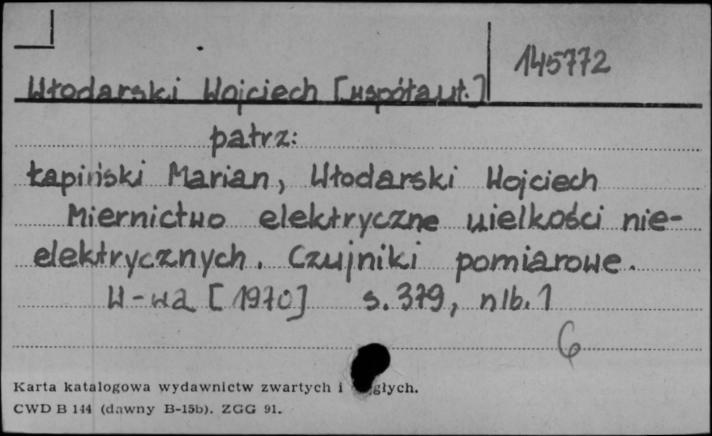 145772
Włodarski Wojciech [współaut.]
patrz:
Łapiński Marian, Włodarski Wojciech
Miernictwo elektryczne wielkości nie-
elektrycznych. Czujniki pomiarowe.
W-wa [1970] s. 379, nlb. 1
6
Karta katalogowa wydawnictw zwartych i głych.
CWD B 144 (dawny B-15b). ZGG 91.